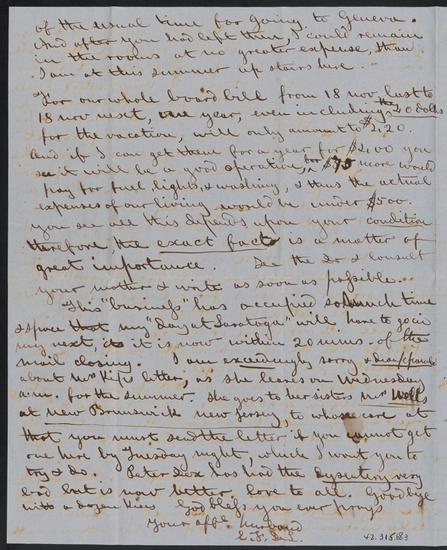 of the usual time for going to Geneva.
And after you had left them, I could remain
in the rooms at no greater expense, than
I am at this summer up stairs here.
"For our whole board bill from 18 nov last to
18 nov next, one year, even including the 20 dolls
for the vacation, will only amount to $2,20.
And if I can get them for a year for $400 you
see it will be a good operation, for $75 more would
pay for fuel, lights, & washing, & thus the actual
expenses of our living would be under $500.
you see all this depends upon your condition
therefore the exact fact is a matter of
great importance. See the Dr & consult
your mother & write as soon as possible.
This "business" has occupied so much time
& space that my "Day at Saratoga" will have to go in
my next, as it is now within 20 mins. of the
mail closing. I am exceedingly sorry &
about Mrs Kip's letter, as she leaves on Wednesday
a.m. for the summer. She goes to her sisters Mrs Wells
at New Brunswick New Jersey, to whose care at
that you must send the letter if you cannot get
one here by Tuesday night, which I want you to
try & do. Peter has had the dysentery very
bad but is now better. love to all. Goodbye
with a dozen kisses God bless you ever prays
Your affte husband
42.315.183